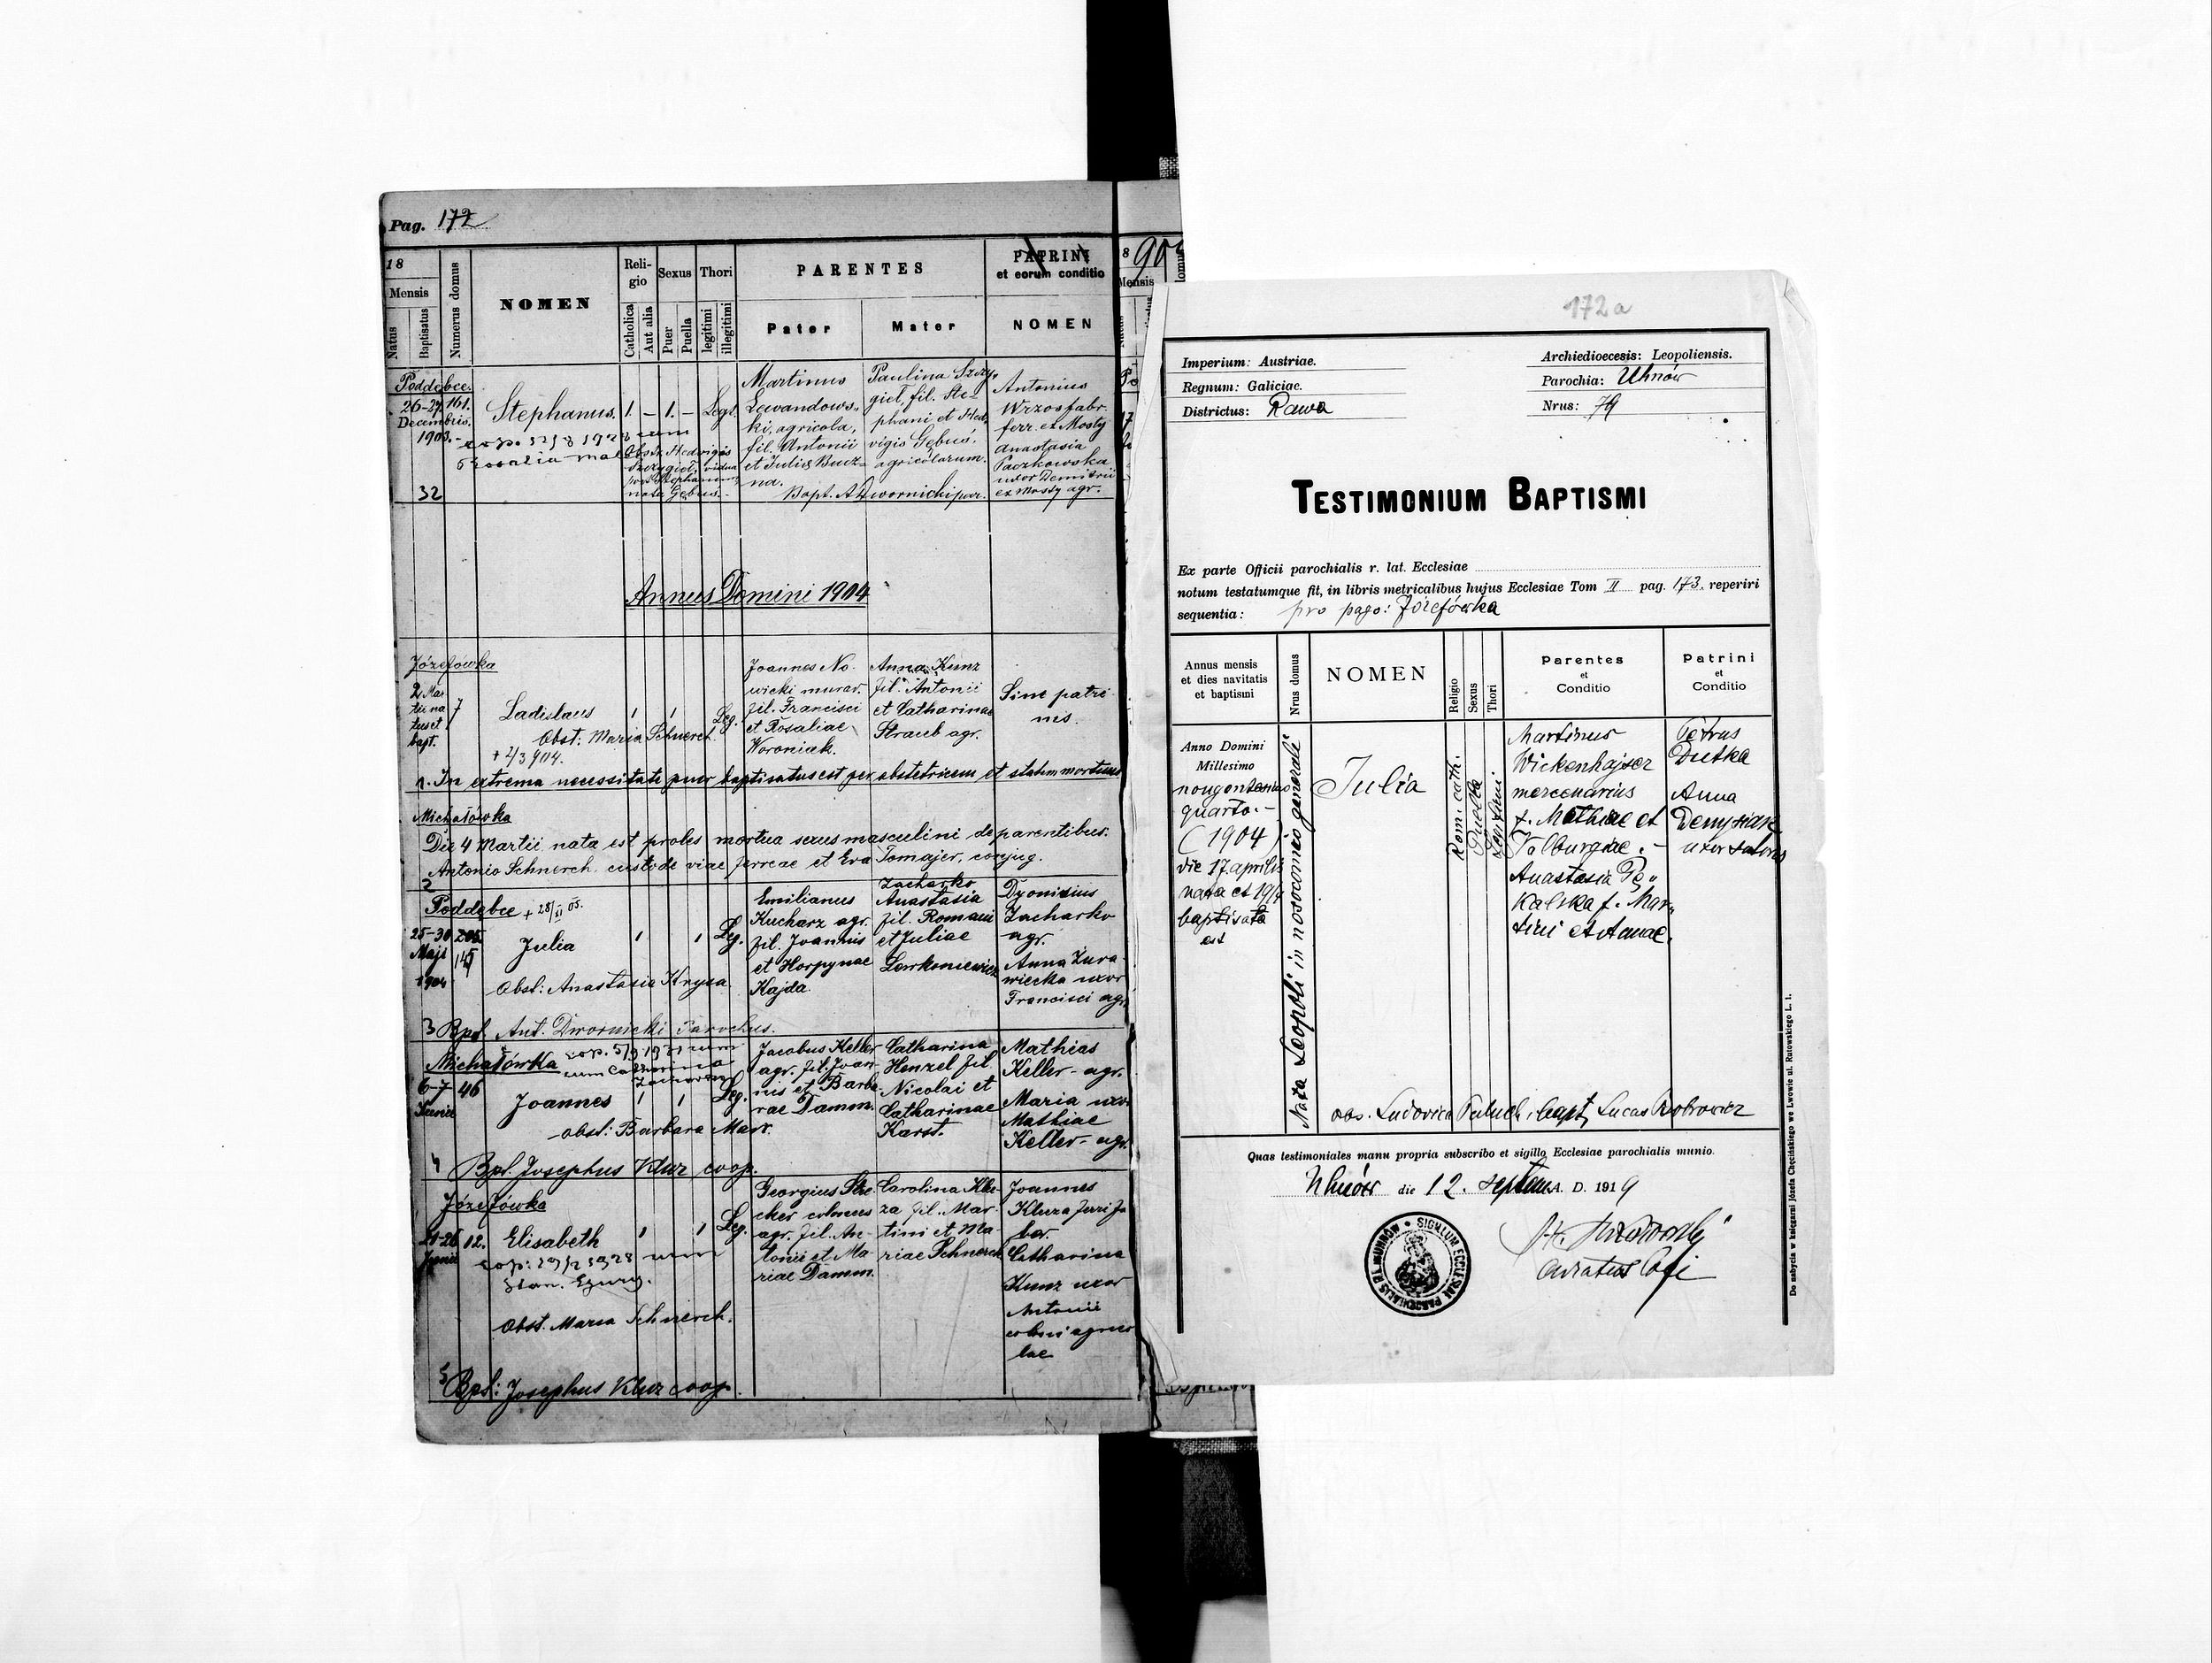 Pag. 172
18
Mensis
Natus
Baptisatus
Numerus domus
NOMEN
Religio
Catholica
Aut alia
Sexus
Puer
Puella
Thori
legitimi
illegitimi
PARENTES
Pater
Mater
PATRINI
et eorum conditio
NOMEN
Poddębce.
26-27. 161.
Decembris.
1903.
Stephanus. 1. – 1. – Legt.
32
Martinus
Lewandows-
ki, agricola,
fil. Antonii
et Julię Bucz-
na.
Paulina Szczy-
gieł, fil. Ste-
phani et Hed-
vigis Gębuś.
agricolarum.
Obst. Hedvigis
Szczygieł, vidua
post Stephanum,
nata Gębus.
Bapt. A Dwornicki par.
Antonius
Wrzos fabr.
ferr. ex Mosty
Anastasia
Paczkowska
uxor Demitrii
ex Mosty agr.
Annus Domini 1904
Józefówka
2 Mar
tii na
tus et
bapt.
7
Ladislaus 1 1 Leg.
Obst: Maria Schnerch
+ 2/3 904.
Joannes No-
wicki murar.
fil. Francisci
et Rosaliae
Woroniak.
Anna Kunz
fil. Antonii
et Catharinae
Straub agr.
Sine patri
nis.
1. In extrema necessitate puer baptisatus est per obstetricem et statim mortuus
Michałówka
Die 4 Martii nata est proles mortua sexus masculini de parentibus:
Antonio Schnerch custode viae ferreae et Eva Tomajer, conjug.
2
Poddębce + 28/XI 05.
25-30
Maji
1904
Julia 1 1 Leg.
Obst: Anastasia Krysa
Emilianus
Kucharz agr.
fil. Joannis
et Horpynae
Kajda.
Zacharko
Anastasia
fil. Romani
et Juliae
Lewkoniewicz
Dyonisius
Zacharko
agr.
Anna Żura-
wiecka uxor
Francisci agr.
3 Bpt. Ant. Dwornicki Parochus.
Michałówka
6-7 46
Junii
Joannes 1 1 Leg.
obst: Barbara Marx.
Jacobus Keller
agr. fil. Joan-
nis et Barba-
rae Damm.
Catharina
Henzel fil.
Nicolai et
Catharinae
Karst.
Mathias
Keller - agr.
Maria uxor
Mathiae
Keller - agr.
4 Bpt. Josephus Kluz coop.
Józefówka
12. Elisabeth 1 1 Leg.
Obst. Maria Schnerch.
Georgius Stre-
cher colonus
agr. fil. An-
tonii et Ma-
riae Damm.
Carolina Klu-
za fil. Mar-
tini et Ma-
riae Schnerch
Joannes
Kluza ferri fa
ber.
Catharina
Kunz uxor
Antonii
coloni agrico
lae
5 Bpt: Josephus Kluz coop.
172a
Imperium: Austriae.
Regnum: Galiciae.
Districtus: Rawa
Archiedioecesis: Leopoliensis.
Parochia: Uhnów
Nrus: 79
TESTIMONIUM BAPTISMI
Ex parte Officii parochialis r. lat. Ecclesiae
notum testatumque fit, in libris metricalibus hujus Ecclesiae Tom II pag. 173. reperiri
sequentia: pro pago: Józefówka
Annus mensis
et dies navitatis
et baptismi
Nrus domus
NOMEN
Religio
Sexus
Thori
Parentes
et
Conditio
Patrini
et
Conditio
Anno Domini
Millesimo
nongentesimo
quarto. –
(1904)
die 17 aprilis
nata et 19/4
baptisata
est
Nata Leopoli in nosocomio generali
Julia
Rom. cath.
Puella
Martinus
Wickenhajser
mercenarius
f. Mathiae et
Valburgae. –
Anastasia Pę-
kalska f. Mar-
tini et Annae.
Petrus
Dutka
Anna
obs. Ludovica Paluch, bapt, Lucas
Quas testimoniales manu propria subscribo et sigillo Ecclesiae parochialis munio.
Uhnów die 12. septem. A. D. 1919
SIGILLUM ECCLESIAE PAROCHIALIS R.L. IN UHNÓW
Do nabycia w księgarni Józefa Chęcińskiego we Lwowie ul. Rutowskiego L. 1.